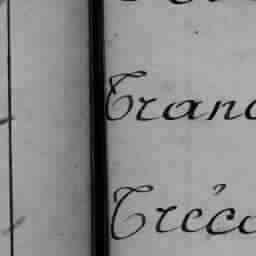 Tranc
Tréco